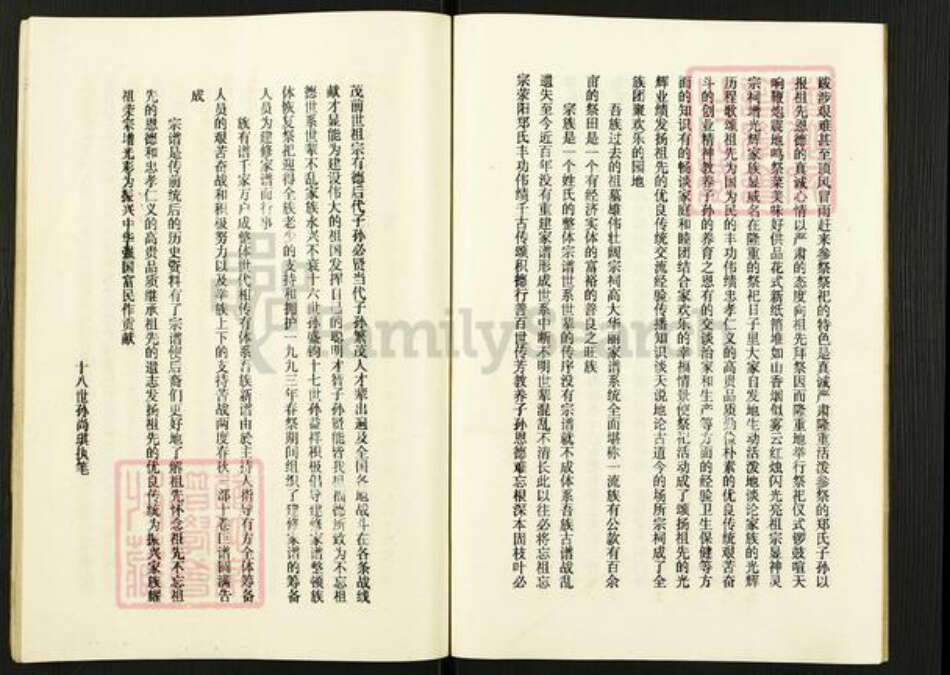 跋涉艰难甚至顶风冒雨赶来参祭祭祀的特色是真诚严肃隆重活泼参祭的郑氏子孙以
报祖先恩德的真诚心情以严肃的态度向祖先拜祭因而隆重地举行祭祀仪式锣鼓喧天
响鞭炮震地鸣祭菜美味好供品花式新纸箔堆如山香烟似雾云红烛闪光亮祖宗显神灵
宗祠增光辉家族显威名在隆重的祭祀日子里大家自发地生动活泼地谈论家族的光辉
历程歌颂祖先为国为民的丰功伟绩忠孝仁义的高贵品质勤俭朴素的优良传统艰苦奋
斗的创业精神教养子孙的养育之恩有的交谈治家和生产等方面的经验卫生保健等方
面的知识有的畅谈家庭和睦团结合家欢乐的幸福情景使祭祀活动成了颂扬祖先的光
辉业绩发扬祖先的优良传统交流经验传播知识谈天说地论古道今的场所宗祠成了全
族团聚欢乐的园地
吾族过去的祖墓雄伟壮阔宗祠高大华丽家谱系统全面堪称一流族有公款有百余
亩的祭田是一个有经济实体的富裕的善良之旺族
宗族是一个姓氏的整体宗谱世系世辈的传序没有宗谱就不成体系吾族古谱战乱
遗失至今近百年没有重建家谱形成世系中断不明世辈混乱不清长此以往必将忘祖忘
宗荥阳郑氏丰功伟绩千古传颂积德行善百世传芳教养子孙恩德难忘根深本固枝叶必
茂前世祖宗有德后代子孙必贤当代子孙繁茂人才辈出遍及全国各地战斗在各条战线
献才显能为建设伟大的祖国发挥自己的聪明才智子孙贤能皆我祖福德所致为不忘祖
德世系世辈不乱家族永兴不衰十六世孙盛钧十七世孙益祥积极倡导建修家谱整顿族
体恢复祭祀迎得全族老少的支持和拥护一九九三年春祭期间组织了建修家谱的筹备
人员为建修家谱而行事
族有谱千家万户成整体世代相传有体系吾族新谱由於主持人指导有方全体筹备
人员的艰苦奋战和积极努力以及举族上下的支持苦战两度春秋一部十卷巨谱圆满告
成
宗谱是传前统后的历史资料有了宗谱使后裔们更好地了解祖先怀念祖先不忘祖
先的恩德和忠孝仁义的高贵品质继承祖先的遗志发扬祖先的优良传统为振兴家族耀
祖荣宗增光彩为振兴中华强国富民作贡献
十八世孙尚骐执笔
FamilySearch